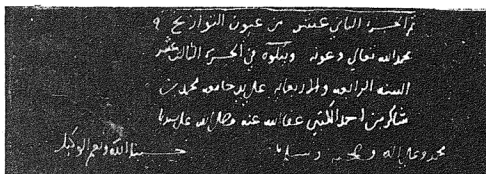 تم الجزء الثاني عشر من عيون التواريخ
بحمد الله تعالى وعونه ويتلوه في الجزء الثالث عشر
السنة الرابعة والاربعمائة على يد جامعه محمد بن
شاكر بن احمد الكتبي عفا الله عنه وصلى الله على سيدنا
محمد وعلى اله وصحبه وسلم حسبنا الله ونعم الوكيل